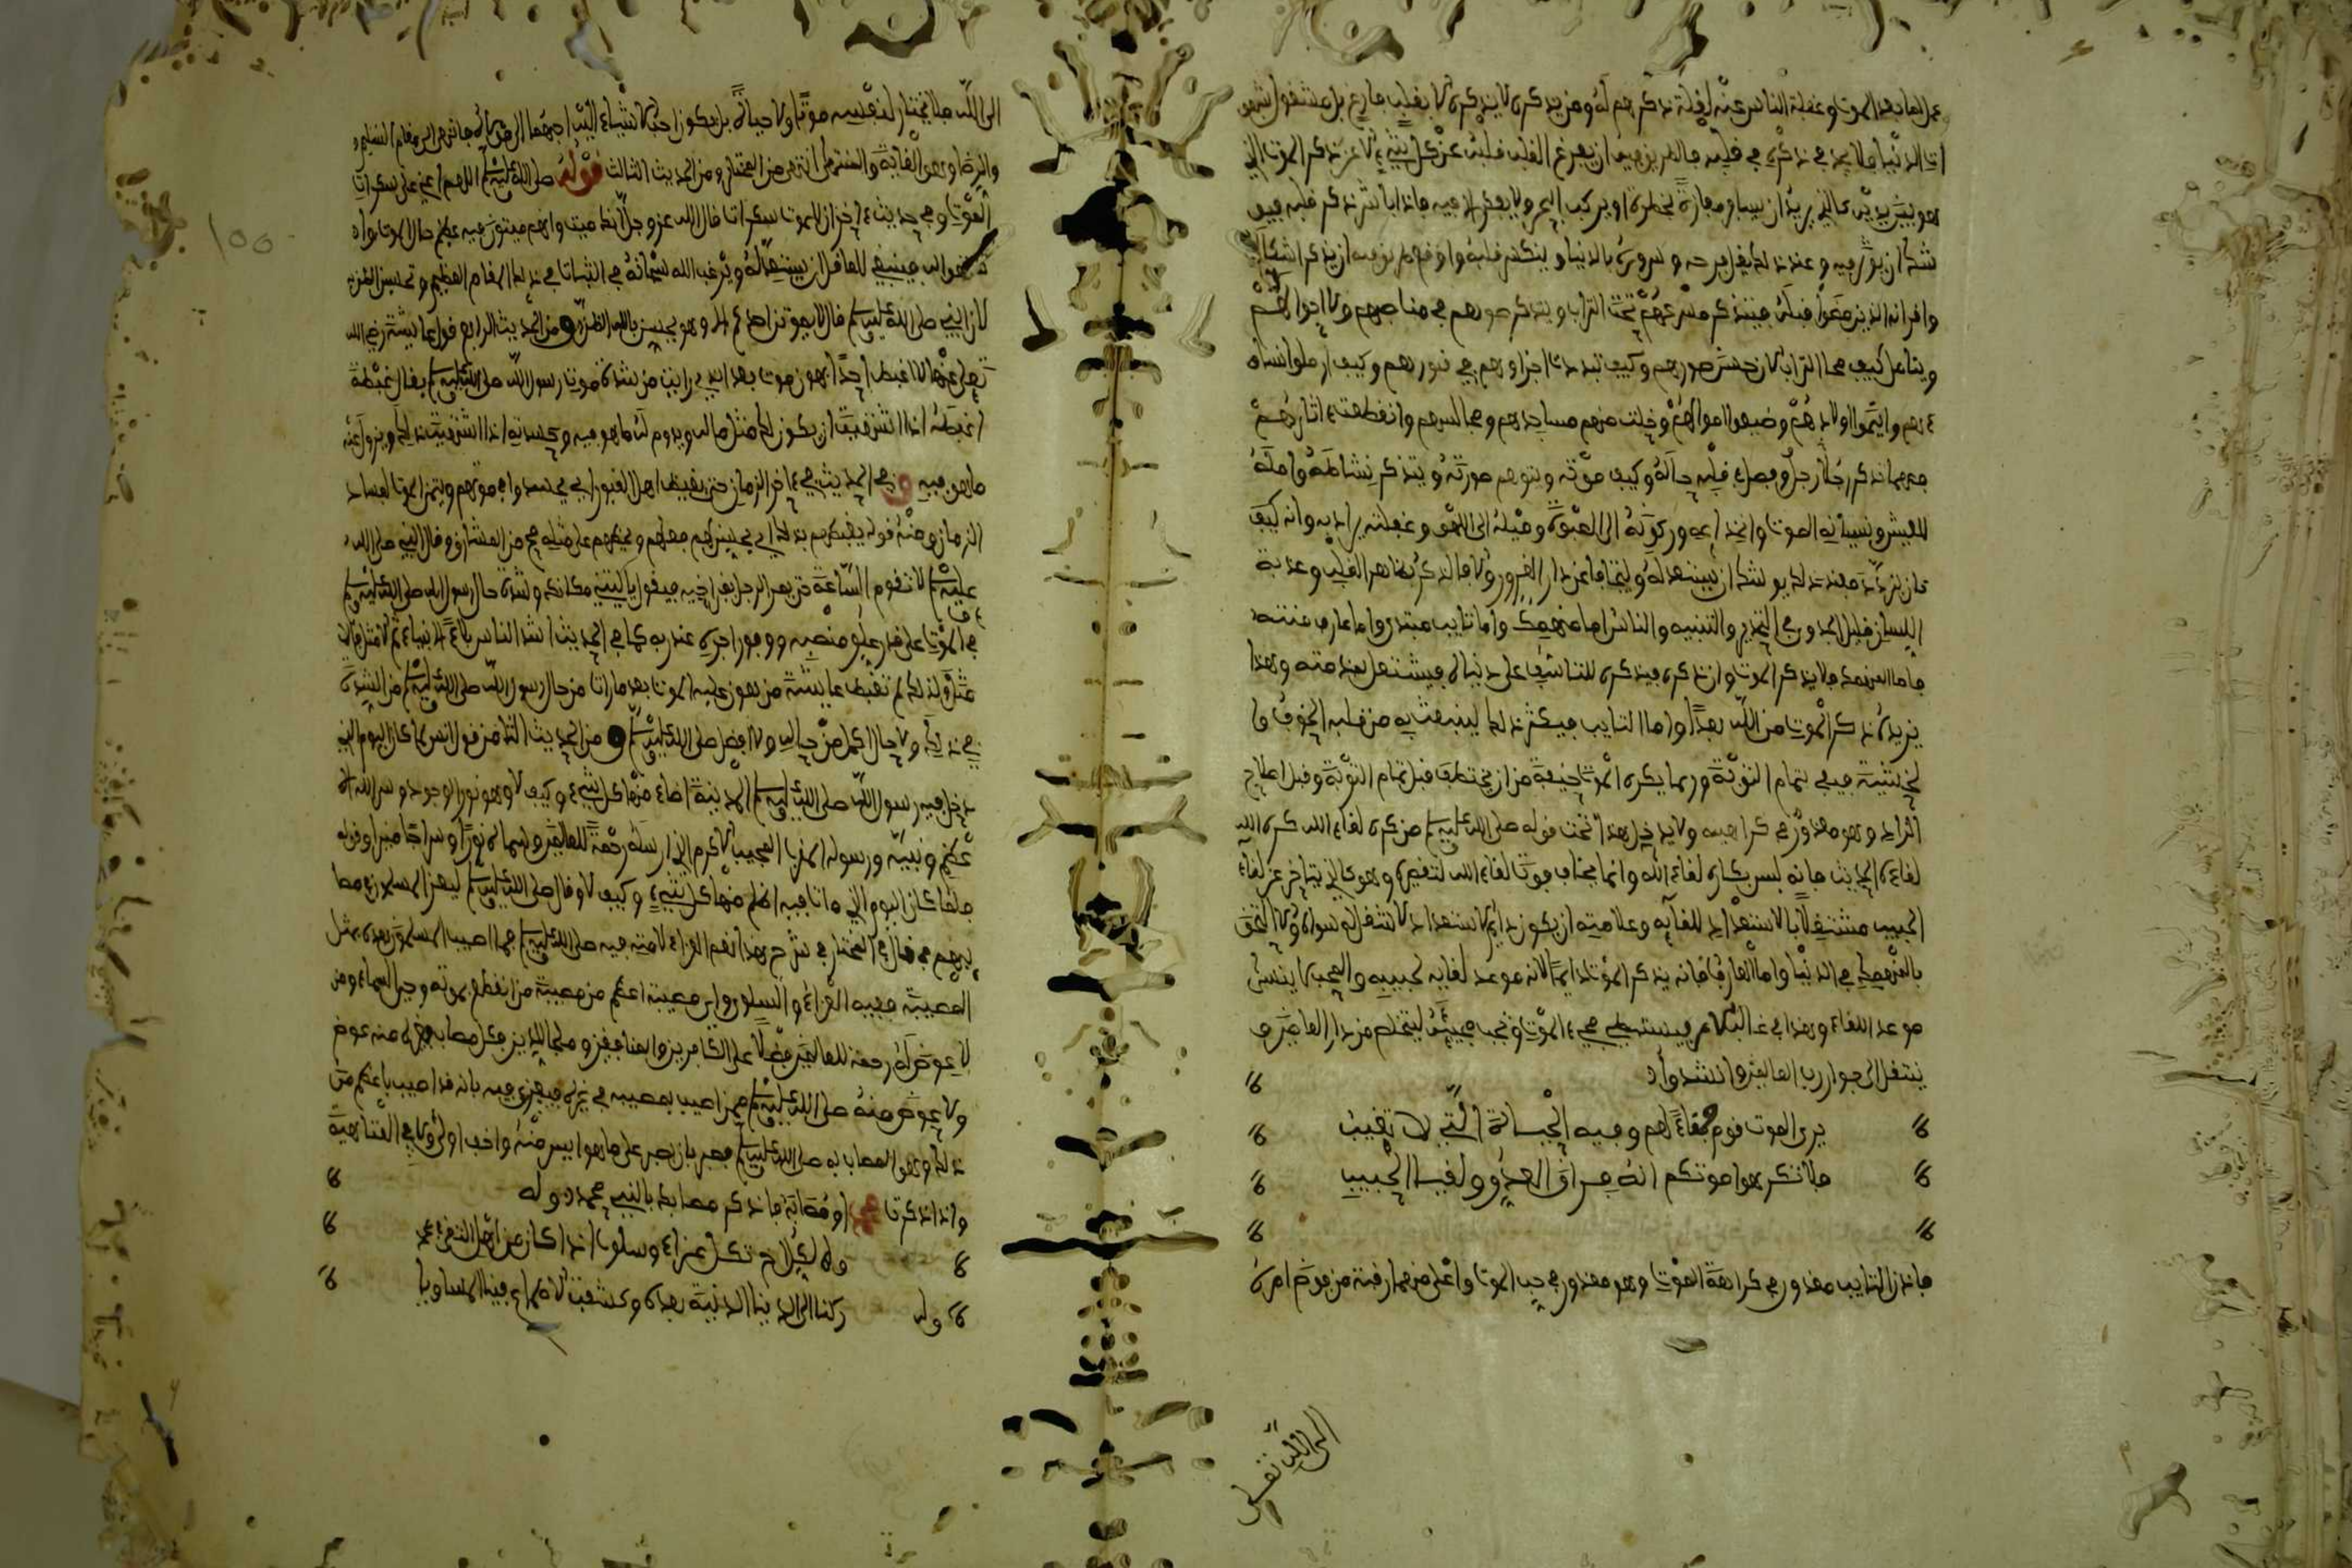 عن لقا بعد الموت وغفلة الناس عنه لقلة ذكرهم له ومن يذكره لا يذكره بقلب فارغ بل مشغول بشهو
ات الدنيا فلا ينجع ذكره في قلبه فالطريق فيه ان يفرغ القلب قلبه عن كل شيء الا عن ذكر الموت الذي
هو بين يديه كالذي يريد ان يسافر مفازة مخطرة او يركب البحر ولا يتفكر الا فيه فاذا باشر ذكر قلبه فيو
شك ان يوثر فيه وعند ذلك يقل فرحه وسروره بالدنيا وينكسر قلبه واوقع طريق فيه ان يذكر اشكاله
واقرانه الذين مضوا قبله فيتذكر مصرعهم تحت التراب ويتذكر صورهم في مناصبهم واحوالهم
ويتامل كيف محا التراب الان حسن صورهم وكيف تبددت اجزاؤهم في قبورهم وكيف ارملوا نساء
هم وايتموا اولادهم وضيعوا اموالهم وخلت منهم مساجدهم ومجالسهم وانقطعت اثارهم
فمهما تذكر رجلا رجلا وفصل في قلبه حاله وكيف موته وتوهم صورته ويتذكر نشاطه وامله
للعيش ونسيانه الموت وانخداعه وركونه الى القوة وميله الى اللهو وغفلته
اللسان قليل الجدوى في التحذير والتنبيه والناس اما منهمك واما تائب مبتدئ واما عارف منته
فاما المنهمك فلا يذكر الموت وان ذكره فيذكره للتاسف على دنياه فيشتغل بمذمته وهذا
يزيده ذكر الموت من الله بعدا واما التائب فيكثر ذلك لينبعث به من قلبه الخوف وا
لخشية فيفي بتمام التوبة وربما يكره الموت خيفة من ان يختطف قبل تمام التوبة وقبل اصلاح
الزاد وهو معذور في كراهيته ولا يدخل هذا تحت قوله صلى الله عليه وسلم من كره لقاء الله كره الله
لقاءه الحديث فانه ليس يكره لقاء الله وانما يخاف فوت لقاء الله لتقصيره وهو كالذي يتاخر عن لقاء
الحبيب مشتغلا بالاستعداد للقائه وعلامته ان يكون دائم الاستعداد لا شغل له سواه والا التحق
بالمنهمك في الدنيا واما العارف فانه يذكر الموت دائما لانه موعد لقائه لحبيبه والمحب لا ينسى
موعد اللقاء وهذا في غالب الامر يستبطئ مجيء الموت ويحب مجيئه ليتخلص من دار العاصين و
ينتقل الى جوار رب العالمين وانشدوا
يرى الموت قوم جفاء لهم وفيه الحياة التي لا تغيب
فلا تكرهوا موتكم انه فراق العدو ولقيا الحبيب
فاذن التائب معذور في كراهة الموت وهو معذور في حب الموت واعلى منهما رتبة من فوض امره
الى الله تعالى
الى الله فلا يختار لنفسه موتا ولا حياة بل يكون احب الاشياء اليه احبها الى مولاه فانتهى الى مقام التسليم
والرضا وهو الغاية والمنتهى انتهى من المختار ومن الحديث الثالث قوله صلى الله عليه وسلم اللهم اعني على سكرات
الموت وفي حديث اخر ان للموت سكرات قال الله عز وجل انك ميت وانهم ميتون
فينبغي للعاقل ان يستعد له ويرغب الله سبحانه في الثبات في ذلك المقام العظيم وتحسين الظن به
لان النبي صلى الله عليه وسلم قال لا يموتن احدكم الا وهو يحسن بالله الظن ومن الحديث الرابع قول عائشة رضي الله
تعلى عنها لا اغبط احدا بهون موت بعد الذي رايت من شدة موت رسول الله صلى الله عليه وسلم يقال غبطه
اغبطه اذا اشتهيت ان يكون لك مثل ماله ويدوم له ما هو فيه وحسدته اذا اشتهيت ذلك ويزول عنه
ما هو فيه وفي الحديث في اخر الزمان حتى يغبط اهل القبور اي يحسدوا في موتهم ويتمنى الموت لفساد
الزمان ومنه قوله يغبطهم بذلك اي يحسن لهم فعلهم ويحضهم على مثله من المشارق وقال النبي صلى الله
عليه وسلم لا تقوم الساعة حتى يمر الرجل بقبر اخيه فيقول يا ليتني مكانك وشدة حال رسول الله صلى الله عليه وسلم
في الموت على قدر علو منصبه ووفور اجره عند ربه كما في الحديث اشد الناس بلاء الانبياء ثم الامثل فالا
مثل ولذلك لم تغبط عائشة من يهون عليه الموت بعد ما رات من حال رسول الله صلى الله عليه وسلم من الشدة
في ذلك ولا حال اكمل من حاله ولا افضل صلى الله عليه وسلم ومن الحديث الثامن قول انس لما كان اليوم الذي
دخل فيه رسول الله صلى الله عليه وسلم المدينة اضاء منها كل شيء وكيف لا وهو نور الوجود وسر الله الا
عظم ونبيه ورسوله المجيب الاكرم الذي ارسله رحمة للعالمين وسماه نورا وسراجا منيرا وقوله
فلما كان اليوم الذي مات فيه اظلم منها كل شيء وكيف لا وقال صلى الله عليه وسلم ليعز المسلمين في مصا
يبهم في قال في المختار في شرح هذا نعم العزاء لامته فيه صلى الله عليه وسلم فما اصيب المسلمون بعده بمثل
المصيبة ففيه العزاء والسلو واي مصيبة اعظم من مصيبة من انقطع بموته وحي السماء ومن
لا عوض له رحمة للعالمين وفضلا على الكافرين والمنافقين وملجا للدين فكل مصاب منه عوض
ولا عوض منه صلى الله عليه وسلم فمن اصيب بمصيبة في غيره فيعزى فيه بانه قد اصيب باعظم من
ذلك وهو المصاب به صلى الله عليه وسلم فصبر بان يصبر على ما هو ايسر منه واخف اولى ولابي العتاهية
واذا ذكرت محمدا ومصابه فاذكر مصابك بالنبي محمد وله
ولكل اخ ثكل عزاء وسلوة اذا كان من اهل التقى
وله ركنا الى الدنيا الدنية بعده وكشفت الاطماع فينا المساويا